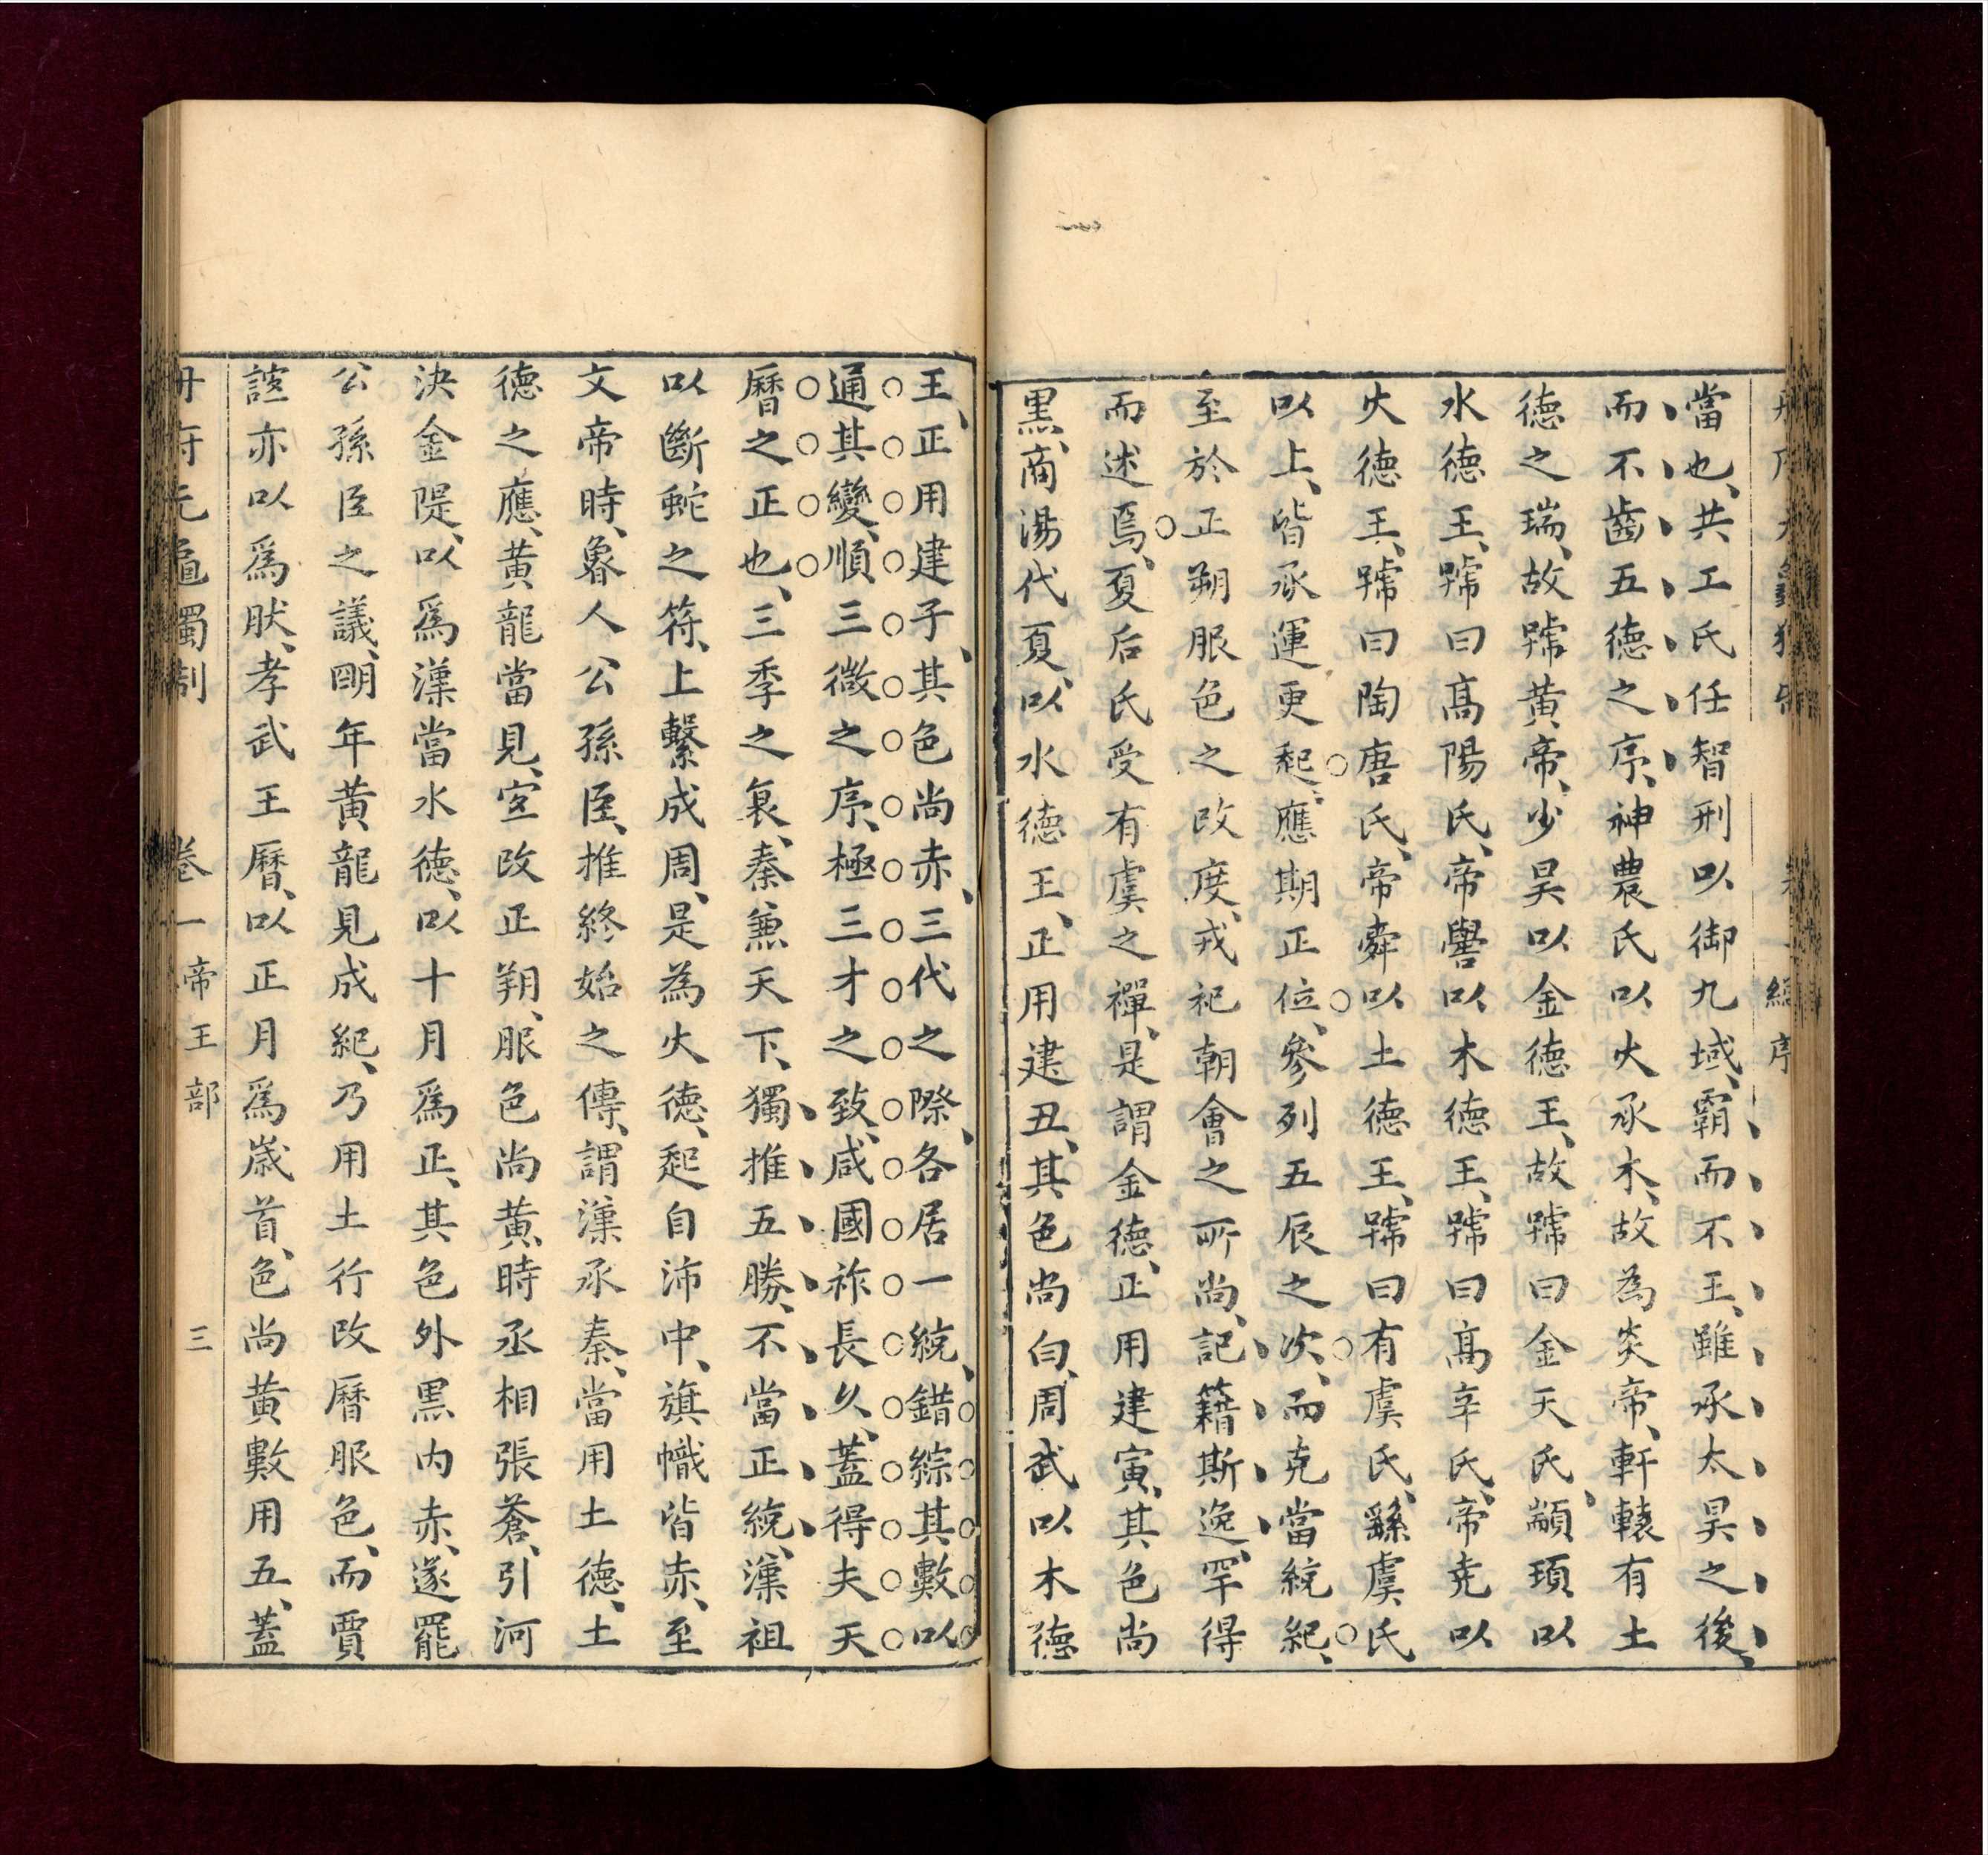 當也、共工氏任智刑以御九域、霸而不王、雖承太昊之後、
而不齒五德之序、神農氏以火承木、故為炎帝、軒轅有土
德之瑞、故號黃帝、少昊以金德王、故號曰金天氏、顓頊以
水德王、號曰高陽氏、帝嚳以木德王、號曰高辛氏、帝堯以
火德王、號曰陶唐氏、帝舜以土德王、號曰有虞氏、繇虞氏
以上、皆承運更起、應期正位、參列五辰之次、而克當統紀、
至於正朔服色之改度、戎祀朝會之所尚、記籍斯逸、罕得
而述焉、夏后氏受有虞之禪、是謂金德、正用建寅、其色尚
黑、商湯代夏、以水德王、正用建丑、其色尚白、周武以木德
王、正用建子、其色尚赤、三代之際、各居一統、錯綜其數以
通其變、順三微之序、極三才之致、咸國祚長久、蓋得夫天
曆之正也、三季之衰、秦兼天下、獨推五勝、不當正統、漢祖
以斷蛇之符、上繫成周、是為火德、起自沛中、旗幟皆赤、至
文帝時、魯人公孫臣、推終始之傳、謂漢承秦、當用土德、土
德之應、黃龍當見、宜改正朔、服色尚黃、時丞相張蒼、引河
決金隄、以爲漢當水德、以十月爲正、其色外黑内赤、遂罷
公孫臣之議、明年黃龍見成紀、乃用土行改曆服色、而賈
誼亦以爲肰、孝武王曆、以正月爲歲首、色尚黃數用五、蓋
冊府元龜獨制 卷一帝王部 三